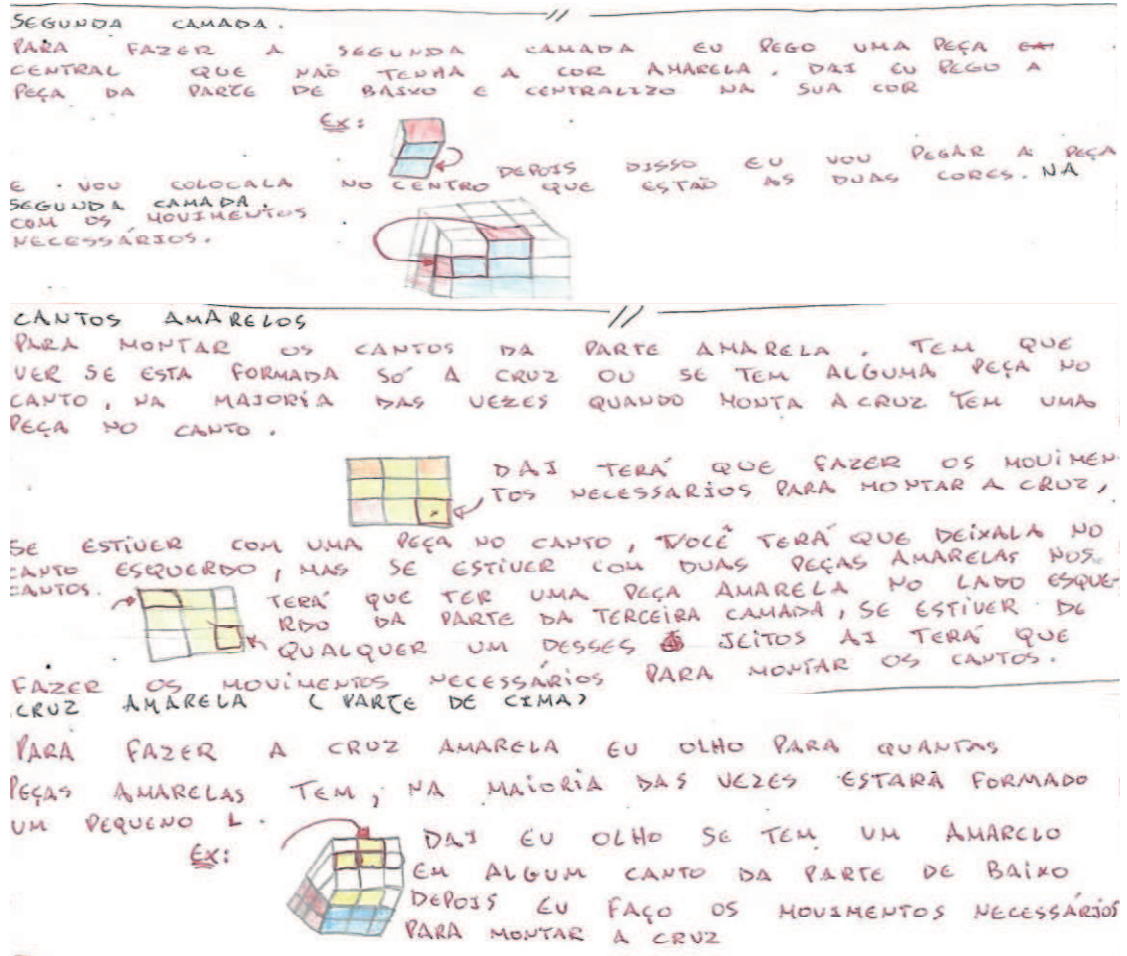 SEGUNDA CAMADA.
PARA FAZER A SEGUNDA CAMADA EU PEGO UMA PEÇA
CENTRAL QUE NAO TENHA A COR AMARELA. DAI EU PEGO A
PEÇA DA PARTE DE BAIXO E CENTRALIZO NA SUA COR
EX:
DEPOIS DISSO EU VOU PEGAR A PEÇA
E VOU COLOCALA NO CENTRO QUE ESTÃO AS DUAS CORES. NA
SEGUNDA CAMADA.
COM OS MOVIMENTOS
NECESSÁRIOS.
CANTOS AMARELOS
PARA MONTAR OS CANTOS DA PARTE AMARELA. TEM QUE
VER SE ESTA FORMADA SÓ A CRUZ OU SE TEM ALGUMA PEÇA NO
CANTO, NA MAIORIA DAS VEZES QUANDO MONTA A CRUZ TEM UMA
PEÇA NO CANTO.
DAI TERÁ QUE FAZER OS MOVIMEN
TOS NECESSARIOS PARA MONTAR A CRUZ,
SE ESTIVER COM UMA PEÇA NO CANTO, VOCÊ TERÁ QUE DEIXALA NO
CANTO ESQUERDO, MAS SE ESTIVER COM DUAS PEÇAS AMARELAS NOS
CANTOS.
TERÁ QUE TER UMA PEÇA AMARELA NO LADO ESQUE-
RDO DA PARTE DA TERCEIRA CAMADA, SE ESTIVER DE
QUALQUER UM DESSES JEITOS AI TERÁ QUE
FAZER OS MOVIMENTOS NECESSÁRIOS PARA MONTAR OS CANTOS.
CRUZ AMARELA (PARTE DE CIMA)
PARA FAZER A CRUZ AMARELA EU OLHO PARA QUANTAS
PEÇAS AMARELAS TEM, NA MAIORIA DAS VEZES ESTARÁ FORMADO
UM PEQUENO L.
EX:
DAI EU OLHO SE TEM UM AMARELO
EM ALGUM CANTO DA PARTE DE BAIXO
DEPOIS EU FAÇO OS MOVIMENTOS NECESSÁRIOS
PARA MONTAR A CRUZ